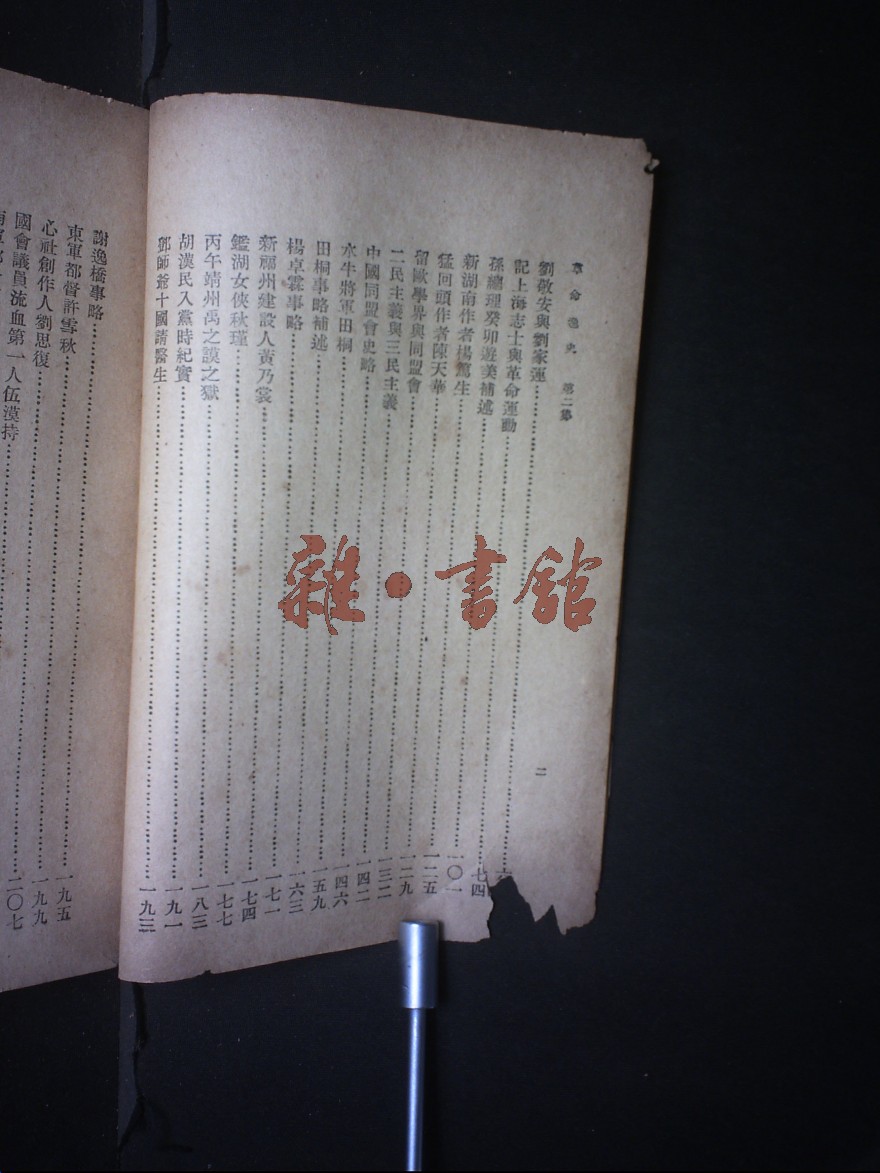 革命逸史 第二集
二
劉敬安與劉家運……六
記上海志士與革命運動……七四
孫總理癸卯遊美補述……一〇一
新湖南作者楊篤生……一二五
猛回頭作者陳天華……一二九
留歐學界與同盟會……一三二
二民主義與三民主義……一四二
中國同盟會史略……一四六
水牛將軍田桐……一五九
田桐事略補述……一六三
楊卓霖事略……一七一
新福州建設人黃乃裳……一七四
鑑湖女俠秋瑾……一七七
丙午靖州禹之謨之獄……一八三
胡漢民入黨時紀實……一九一
鄧師爺十國請醫生……一九三
謝逸橋事略……一九五
東軍都督許雪秋……一九九
心社創作人劉思復……二〇七
國會議員流血第一人伍漢持……
雜·書館